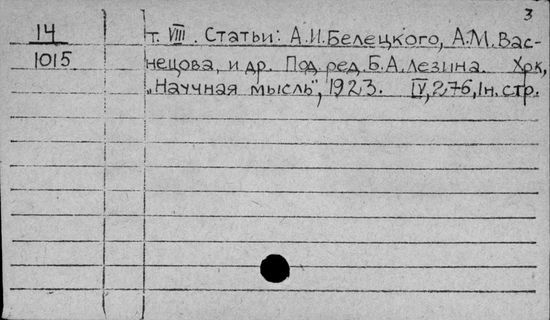 3
14
1015
т. VIII. Статьи: А.И.Белецкого, А.М.Вас-
нецова, и др. Под ред. Б.А.Лезина. Хрк,
„Научная мысль", 1923. IV, 276, 1н. стр.